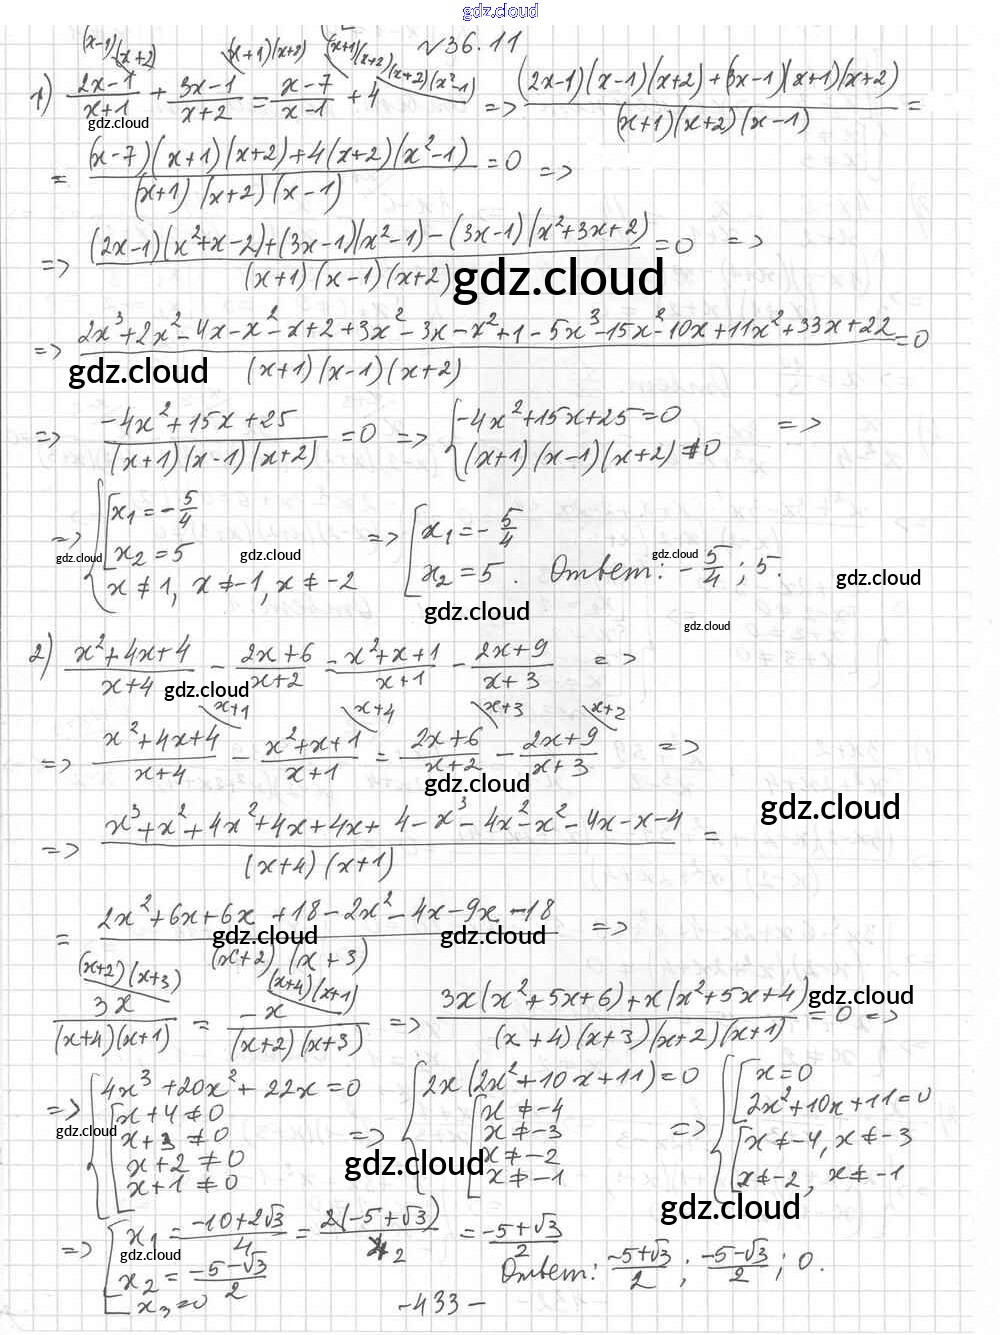 gdz.cloud
№36.11
(x-1)(x+2) (x+1)(x+2) (x+1)(x+2) (x+2)(x²-1)
1) (2x-1)/(x+1) + (3x-1)/(x+2) = (x-7)/(x-1) + 4 => ((2x-1)(x-1)(x+2)+(3x-1)(x+1)(x+2))/((x+1)(x+2)(x-1)) =
gdz.cloud
= ((x-7)(x+1)(x+2)+4(x+2)(x²-1))/((x+1)(x+2)(x-1)) = 0 =>
=> ((2x-1)(x²+x-2)+(3x-1)(x²-1)-(3x-1)(x²+3x+2))/((x+1)(x-1)(x+2)) = 0 =>
gdz.cloud
=> (2x³+2x²-4x-x²-x+2+3x²-3x-x²+1-5x³-15x²-10x+11x²+33x+22)/((x+1)(x-1)(x+2)) = 0
gdz.cloud
=> (-4x²+15x+25)/((x+1)(x-1)(x+2)) = 0 => { -4x²+15x+25=0 =>
(x+1)(x-1)(x+2)≠0
=> { [ x₁=-5/4
x₂=5
x≠1, x≠-1, x≠-2
=> [ x₁=-5/4
x₂=5. Ответ: -5/4; 5.
gdz.cloud gdz.cloud gdz.cloud gdz.cloud
gdz.cloud gdz.cloud
2) (x²+4x+4)/(x+4) - (2x+6)/(x+2) = (x²+x+1)/(x+1) - (2x+9)/(x+3) =>
gdz.cloud
x+1 x+4 x+3 x+2
=> (x²+4x+4)/(x+4) - (x²+x+1)/(x+1) = (2x+6)/(x+2) - (2x+9)/(x+3) =>
gdz.cloud gdz.cloud
=> (x³+x²+4x²+4x+4x+4-x³-4x²-x²-4x-x-4)/((x+4)(x+1)) =
= (2x²+6x+6x+18-2x²-4x-9x-18)/((x+2)(x+3)) =>
gdz.cloud gdz.cloud
(x+2)(x+3) (x+4)(x+1)
3x/((x+4)(x+1)) = -x/((x+2)(x+3)) => (3x(x²+5x+6)+x(x²+5x+4))/((x+4)(x+3)(x+2)(x+1)) = 0 =>
gdz.cloud
=> { 4x³+20x²+22x=0
[ x+4≠0
x+3≠0
x+2≠0
x+1≠0
=> { 2x(2x²+10x+11)=0
[ x≠-4
x≠-3
x≠-2
x≠-1
=> { [ x=0
2x²+10x+11=0
[ x≠-4, x≠-3
x≠-2, x≠-1
gdz.cloud gdz.cloud gdz.cloud
=> [ x₁ = (-10+2√3)/4 = 2(-5+√3)/4 2 = (-5+√3)/2
x₂ = (-5-√3)/2
x₃=0
gdz.cloud
Ответ: (-5+√3)/2; (-5-√3)/2; 0.
-433-